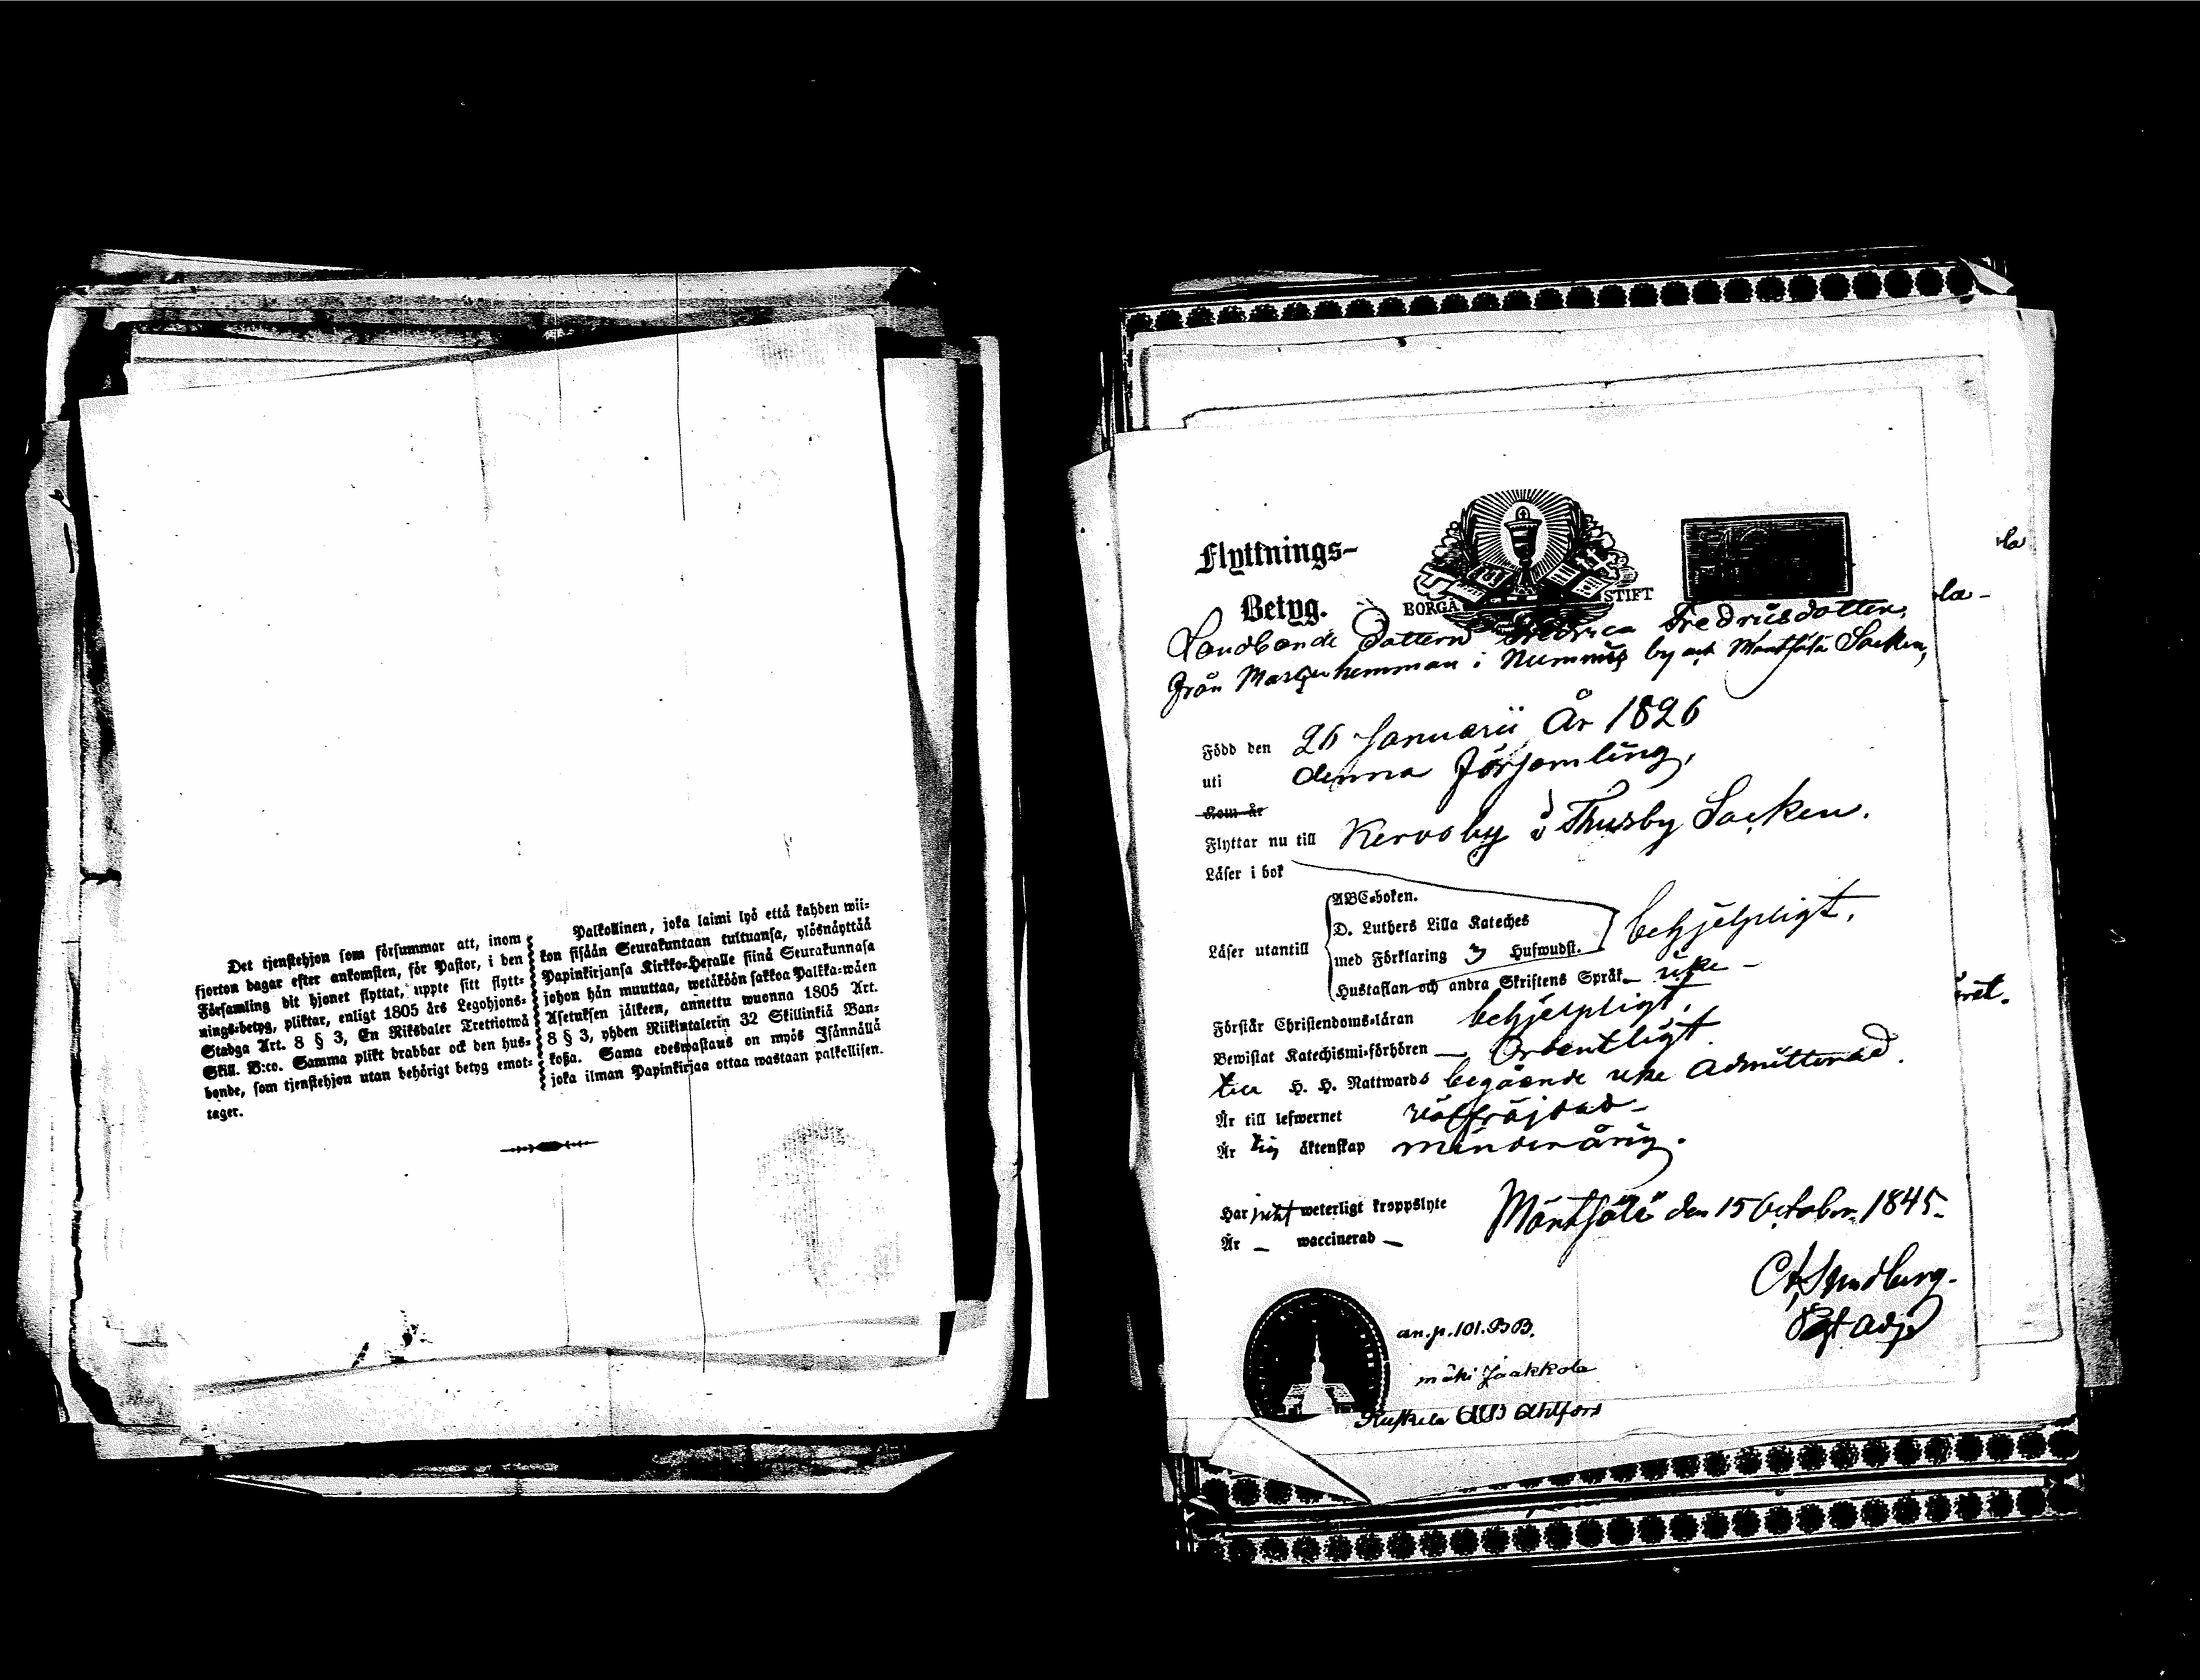 Det tjenstehjon som försummar att, inom
fjorton dagar efter ankomsten, för Pastor, i den
Församling dit hjonet flyttat, uppte sitt flytt-
nings-betyg, pliktar, enligt 1805 års Legohjons-
Stadga Art. 8 § 3, En Riksdaler Trettiotwå
Skill. B:co. Samma plikt drabbar ock den hus-
bonde, som tjenstehjon utan behörigt betyg emot-
tager.
Palkollinen, joka laimi lyö että kahden wii-
kon sisään Seurakuntaan tultuansa, ylösnäyttää
Papinkirjansa Kirkko-Heralle siinä Seurakunnasa
johon hän muuttaa, wetäköön sakkoa Palkka-wäen
Asetuksen jälkeen, annettu wuonna 1805 Art.
8 § 3, yhden Riikintalerin 32 Skillinkiä Ban-
koßa. Sama edeswastaus on myös Isännällä
joka ilman Papinkirjaa ottaa wastaan palkollisen.
Flyttnings-
Betyg.
BORGÅ STIFT
Landbonde Dottern Fredrica Fredricsdotter,
från hemman i Nummis by och Mäntsälä Socken,
Född den 26 Januarii År 1826
uti denna Församling,
Kom år
Flyttar nu till Kervo by i Thusby Socken.
Läser i bok
ABC-boken.
D. Luthers Lilla Kateches
Läser utantill
med Förklaring 3 Hufwudst.
behjelpligt.
Hustaflan och andra Skriftens Språk - icke -
Förstår Christendoms-läran behjelpligt.
Bewistat Katechismi-förhören - Ordentligt.
till H. H. Nattwards begående icke admitterad.
Är till lefwernet wälfräjdad -
Är till äktenskap minderårig.
Har intet weterligt kroppslyte
Mäntsälä den 15 October 1845.
Är - waccinerad -
Adj
an. p. 101. BB.
mäki Jaakkola
Ahlfors